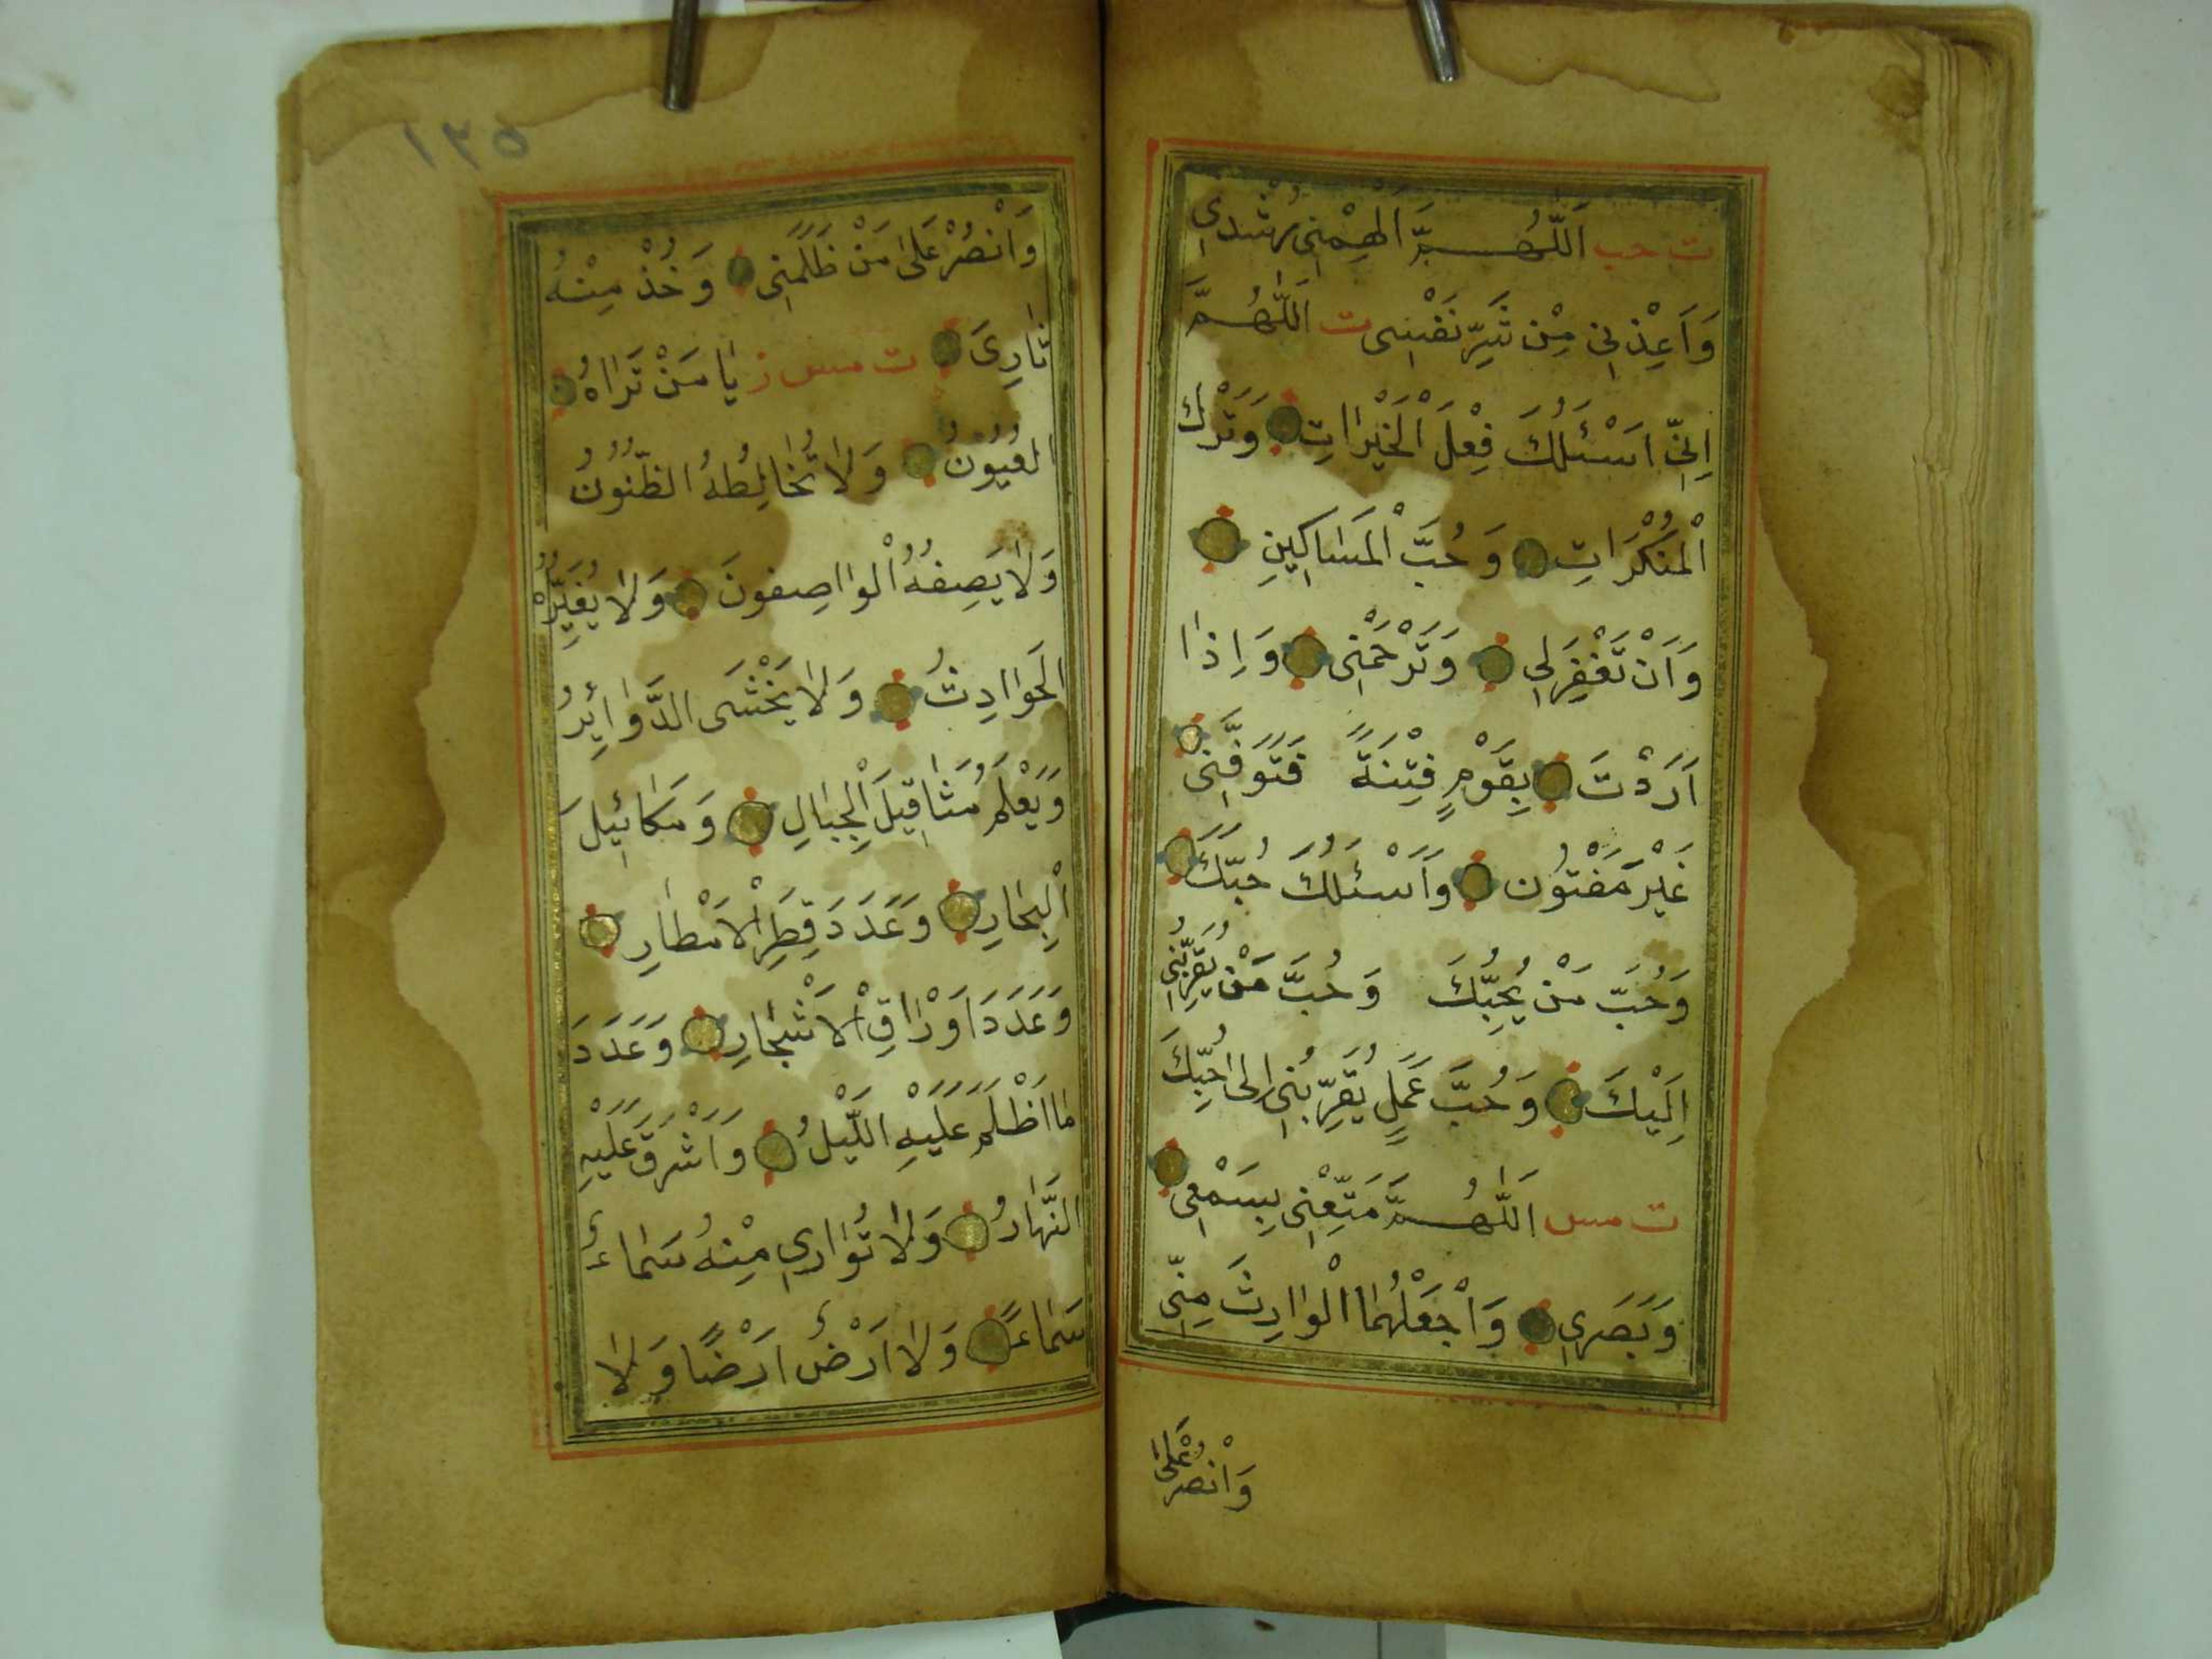 ت حب اَللّٰهُمَّ اَلْهِمْنِي رُشْدِي
وَاَعِذْنِي مِنْ شَرِّ نَفْسِى ت اَللّٰهُمَّ
اِنِّي اَسْئَلُكَ فِعْلَ الْخَيْرَاتِ وَتَرْكَ
الْمُنْكَرَاتِ وَحُبَّ الْمَسَاكِينِ
وَاَنْ تَغْفِرَلِي وَتَرْحَمْنِى وَاِذَا
اَرَدْتَ بِقَوْمٍ فِتْنَةً فَتَوَفَّنِى
غَيْرَ مَفْتُونٍ وَاَسْئَلُكَ حُبَّكَ
وَحُبَّ مَنْ يُحِبُّكَ وَحُبَّ مَنْ يُقَرِّبُنِى
اِلَيْكَ وَحُبَّ عَمَلٍ يُقَرِّبُنِى اِلٰى حُبِّكَ
ت مس اَللّٰهُمَّ مَتِّعْنِى بِسَمْعِى
وَبَصَرِي وَاجْعَلْهُمَا الْوَارِثَ مِنِّى
وَانْصُرْ عَلٰى
١٣٥
وَانْصُرْ عَلٰى مَنْ ظَلَمَنِى وَخُذْ مِنْهُ
ثَارِىَ ت مس ز يَا مَنْ تَرَاهُ
الْعُيُوْنُ وَلَا تُخَالِطُهُ الظُّنُوْنُ
وَلَا يَصِفُهُ الْوَاصِفُونَ وَلَا يُغَيِّرُهُ
الْحَوَادِثُ وَلَا يَخْشَى الدَّوَائِرُ
وَيَعْلَمُ مَثَاقِيلَ الْجِبَالِ وَمَكَائِيلَ
الْبِحَارِ وَعَدَدَ قِطَرِ الْاَمْطَارِ
وَعَدَدَ اَوْرَاقِ الْاَشْجَارِ وَعَدَدَ
مَا اَظْلَمَ عَلَيْهِ اللَّيْلُ وَاَشْرَقَ عَلَيْهِ
النَّهَارُ وَلَا تُوَارِي مِنْهُ سَمَاءٌ
سَمَاءً وَلَا اَرْضٌ اَرْضًا وَلَا